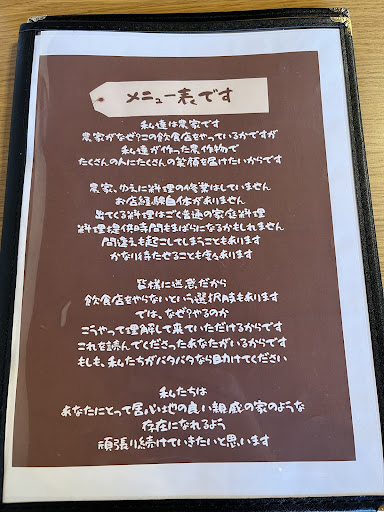 メニュー表です
私達は農家です
農家がなぜ?この飲食店をやっているかですが
私達が作った農作物で
たくさんの人にたくさんの笑顔を届けたいからです
農家、ゆえに料理の修業はしていません
お店経験自体がありません
出てくる料理はごく普通の家庭料理
料理提供時間もまばらになるかもしれません
間違えも起こしてしまうこともあります
かなり待たせることも多々あります
皆様に迷惑だから
飲食店をやらないという選択肢もあります
では、なぜ?やるのか
こうやって理解して来ていただけるからです
これを読んでくださったあなたがいるからです
もしも、私たちがバタバタなら助けてください
私たちは
あなたにとって居心地の良い親戚の家のような
存在になれるよう
頑張り続けていきたいと思います